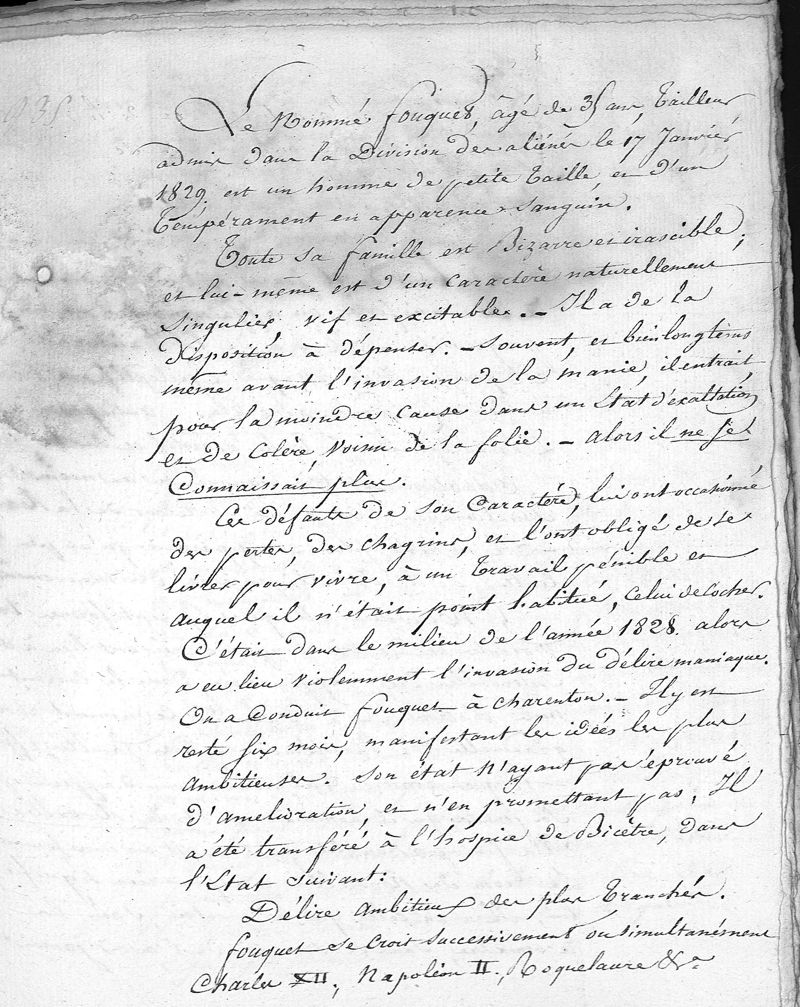 Le nommé fouquet, âgé de 35 ans, Tailleur
admis dans la Division des aliénés le 17 Janvier
1829. est un homme de petite Taille et d'un
Tempérament en apparence sanguin.
Toute sa famille est Bizarre et irascible,
et lui-même est d'un Caractère naturellement
Singulier, vif et excitable. - Il a de la
Disposition à dépenser. - Souvent, et bien longtems
même avant l'invasion de la manie, il entrait,
pour la moindre cause dans un Etat d'exaltation
et de Colère, voisin de la folie. - alors il ne se
Connaissait plus.
Ces défauts de son Caractère, lui ont occasionné
des pertes, des chagrins, et l'ont obligé de se
livrer pour vivre, à un Travail pénible et
auquel il n'était point habitué, celui de Cocher.
C'était dans le milieu de l'année 1828. alors
a eu lieu violemment l'invasion du délire maniaque.
On a Conduit fouquet à Charenton. - Il y est
resté six mois, manifestant les idées les plus
ambitieuses. Son état n'ayant pas éprouvé
d'amelioration, et n'en promettant pas, Il
a été transféré à l'hospice de Bicêtre, dans
l'Etat suivant:
Délire ambitieux des plus Tranchés.
fouquet se Croit successivement ou simultanément
Charles XII, Napoléon II, Roquelaure &a